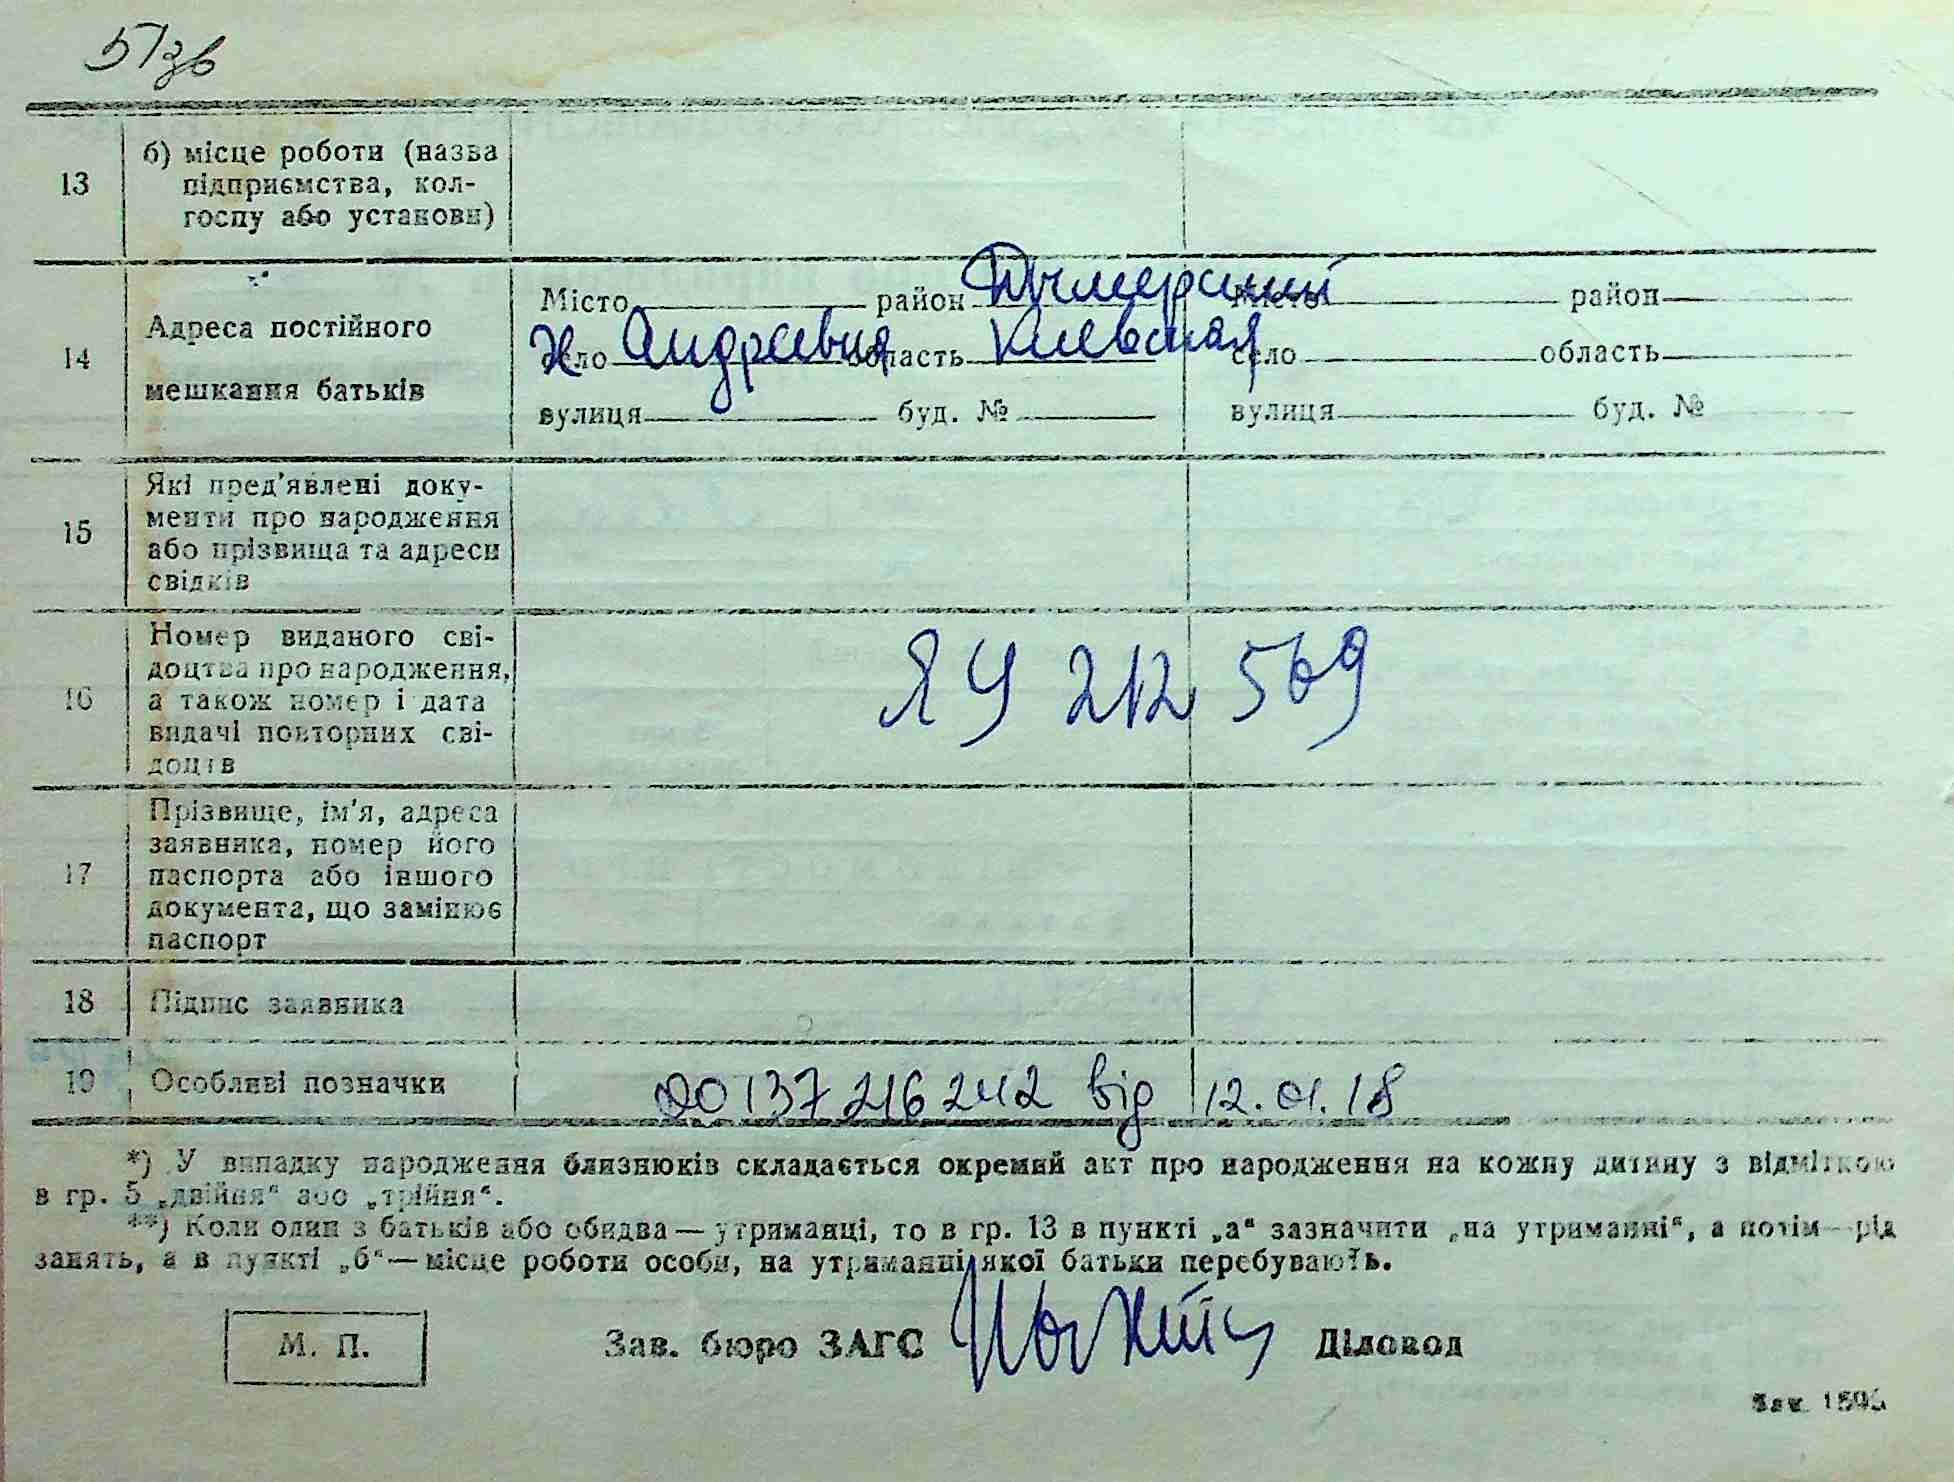 51зв
13
б) місце роботи (назва
підприємства, кол-
госпу або установи)
14
Адреса постійного
мешкання батьків
Місто район Дымерский
х. Андреевка область Киевская
вулиця буд. №
Місто район
село область
вулиця буд. №
15
Які пред'явлені доку-
менти про народження
або прізвища та адреси
свідків
16
Номер виданого сві-
доцтва про народження,
а також номер і дата
видачі повторних сві-
доцтв
ЯЧ 212 569
17
Прізвище, ім'я, адреса
заявника, номер його
паспорта або іншого
документа, що замінює
паспорт
18
Підпис заявника
19
Особливі позначки
00137216242 від 12.01.18
*) У випадку народження близнюків складається окремий акт про народження на кожну дитину з відміткою
в гр. 5 „двійня“ або „трійня“.
**) Коли один з батьків або обидва — утриманці, то в гр. 13 в пункті „а“ зазначити „на утриманні“, а потім — рід
занять, а в пункті „б“ — місце роботи особи, на утриманні якої батьки перебувають.
М. П.
Зав. бюро ЗАГС
Діловод
Зак.